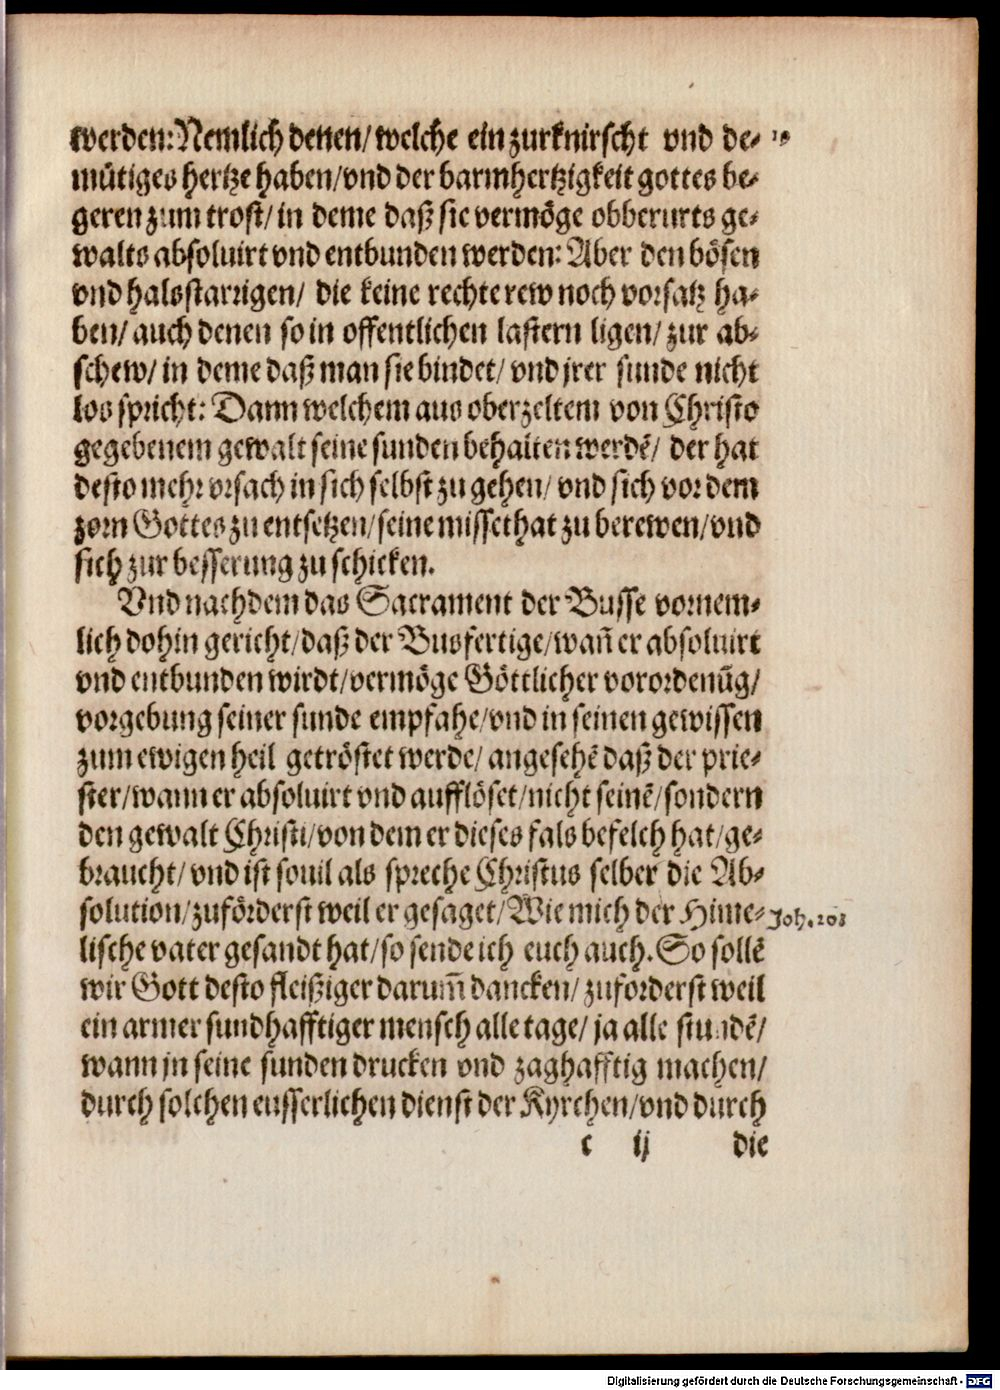 werden: Nemlich denen/ welche ein zurknirscht vnd de⸗
mütiges hertze haben/ vnd der barmhertzigkeit gottes be⸗
geren zum trost/ in deme daß sie vermöge obberurts ge⸗
walts absoluirt vnd entbunden werden: Aber den bösen
vnd halsstarrigen/ die keine rechte rew noch vorsatz ha⸗
ben/ auch denen so in offentlichen lastern ligen/ zur ab⸗
schew/ in deme daß man sie bindet/ vnd jrer sunde nicht
los spricht: Dann welchem aus oberzeltem von Christo
gegebenem gewalt seine sunden behalten werdē/ der hat
desto mehr vrsach in sich selbst zu gehen/ vnd sich vor dem
zorn Gottes zu entsetzen/ seine missethat zu berewen/ vnd
sich zur besserung zu schicken.
Vnd nachdem das Sacrament der Busse vornem⸗
lich dohin gericht/ daß der Busfertige/ wañ er absoluirt
vnd entbunden wirdt/ vermöge Göttlicher vorordenūg/
vorgebung seiner sunde empfahe/ vnd in seinen gewissen
zum ewigen heil getröstet werde/ angesehē daß der prie⸗
ster/ wann er absoluirt vnd aufflöset/ nicht seinē/ sondern
den gewalt Christi/ von dem er dieses fals befelch hat/ ge⸗
braucht/ vnd ist souil als spreche Christus selber die Ab⸗
solution/ zuförderst weil er gesaget/ Wie mich der Hime⸗
Joh. 20:
lische vater gesandt hat/ so sende ich euch auch. So sollē
wir Gott desto fleißiger darum̄ dancken/ zuforderst weil
ein armer sundhafftiger mensch alle tage/ ja alle stundē/
wann jn seine sunden drucken vnd zaghafftig machen/
durch solchen eusserlichen dienst der Kyrchen/ vnd durch
c ij die
Digitalisierung gefördert durch die Deutsche Forschungsgemeinschaft - DFG